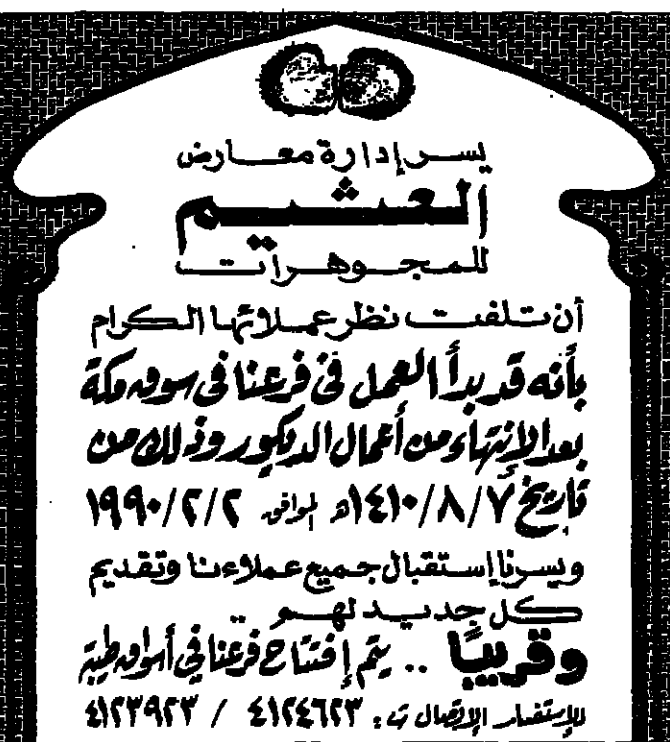 يسر إدارة معارض
العثيم
للمجوهرات
أن تلفت نظر عملائها الكرام
بأنه قد بدأ العمل في فرعنا في سوق مكة
بعد الإنتهاء من أعمال الديكور وذلك من
تاريخ ١٤١٠/٨/٧هـ الموافق ١٩٩٠/٢/٢
ويسرنا إستقبال جميع عملاءنا وتقديم
كل جديد لهم ..
وقريبًا .. يتم إفتتاح فرعنا في أسواق طيبة
للإستفسار الإتصال ت: ٤١٢٤٦٢٣ / ٤١٢٣٩٢٣